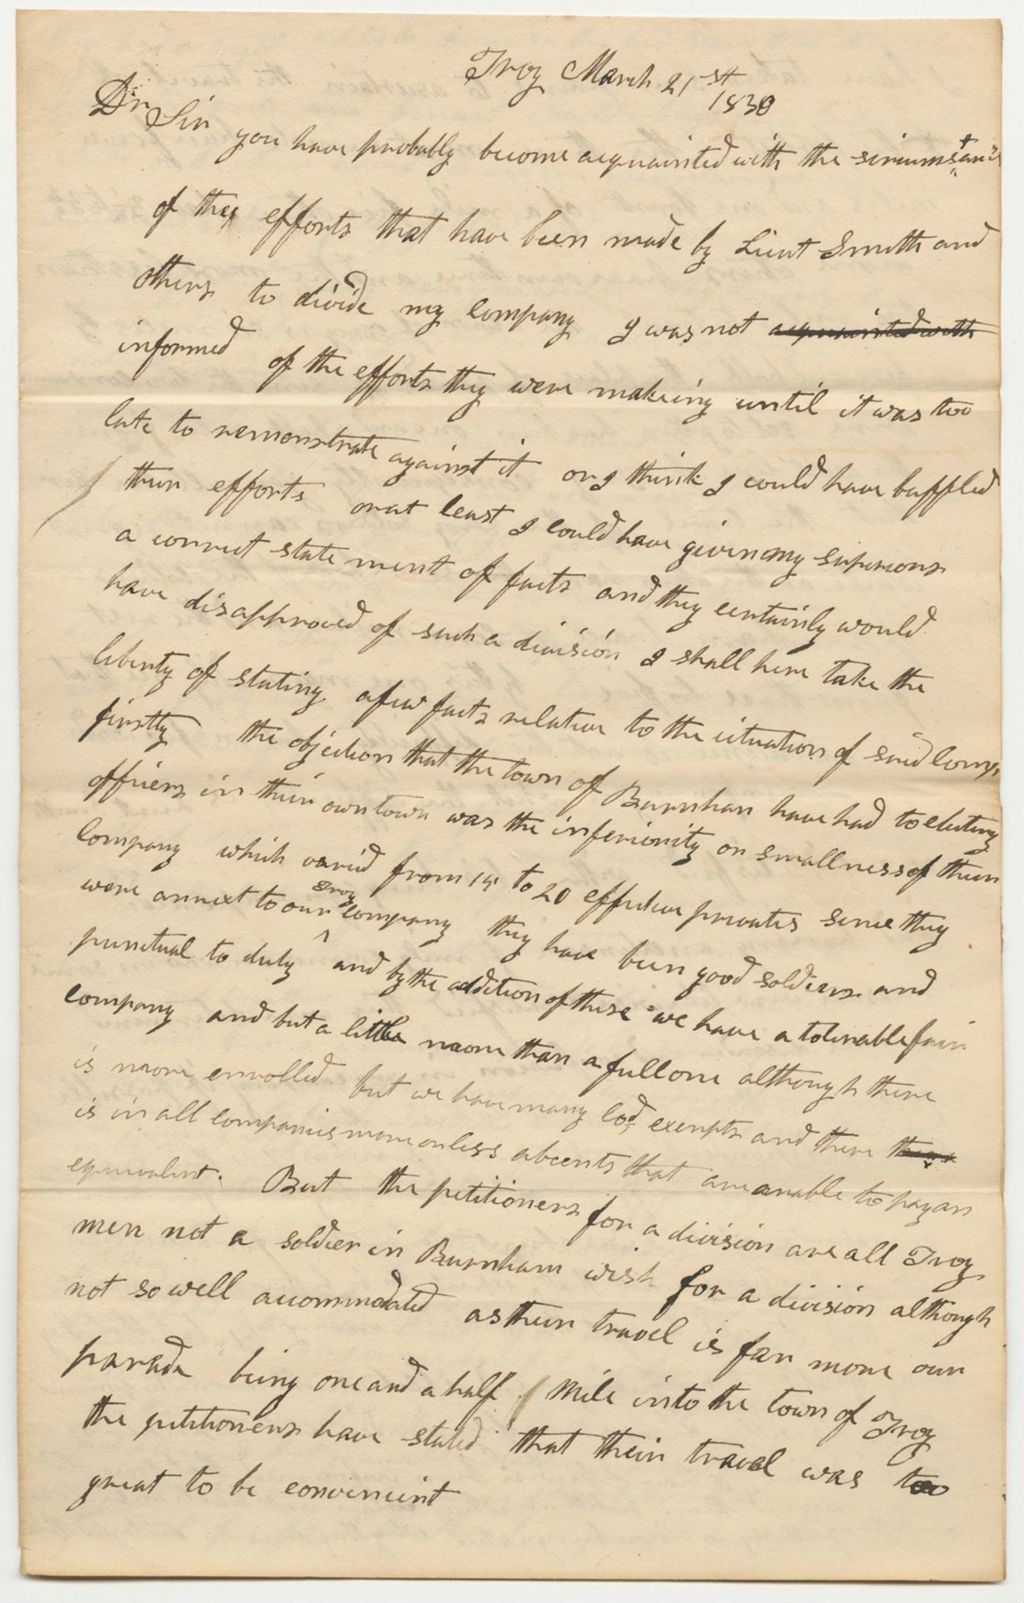 Troy March 21st
1830
Dr Sir you have probably become acquainted with the sircumstans
of the efforts that have been made by Lieut Smith and
others to divide my company I was not acquainted with
informed of the efforts they were makeing until it was too
late to remonstrate against it or I think I could have baffled
their efforts or at least I could have given my superiors
a correct state ment of facts and they certainly would
have disapproved of such a division I shall here take the
liberty of stating a few facts relative to the situation of said Comp
firstly the objection that the town of Burnham have had to electing
officers in their own town was the inferiority or smallness of their
Company which varied from 15 to 20 effective privates since they
were annext to our Troy company they have been good soldiers and
punctual to duty and by the addition of these we have a tolerable fair
company and but a little more than a full one although there
is more enrolled but we have many cod. exempts and there
is in all companies more or less abcents that are anable to pay an
equivalent. But the petitioners for a division are all Troy
men not a soldier in Burnham wish for a division although
not so well accommodated as their travel is far more our
parade being one and a half mile into the town of Troy
the petitioners have stated that their travel was too
great to be convenient